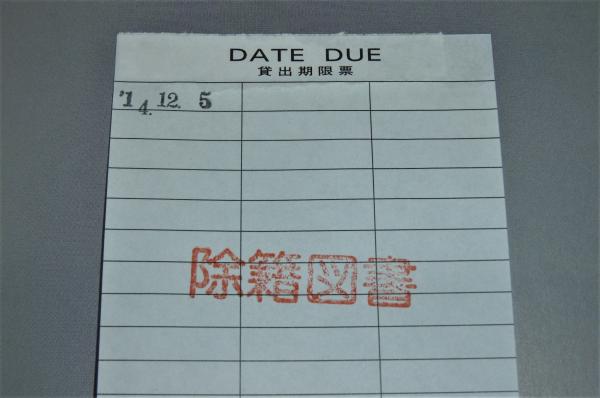 DATE DUE
貸出期限票
'14.12. 5
除籍図書